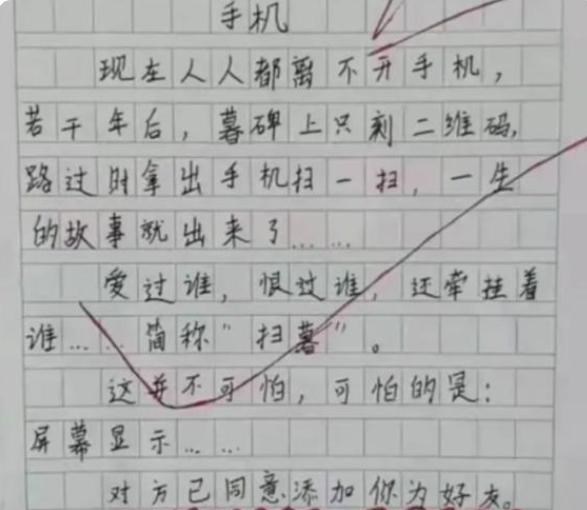 手机
现在人人都离不开手机，
若干年后，暮碑上只刻二维码，
路过时拿出手机扫一扫，一生
的故事就出来了……
爱过谁，恨过谁，还牵挂着
谁……简称“扫暮”。
这并不可怕，可怕的是：
屏幕显示……
对方已同意添加你为好友。